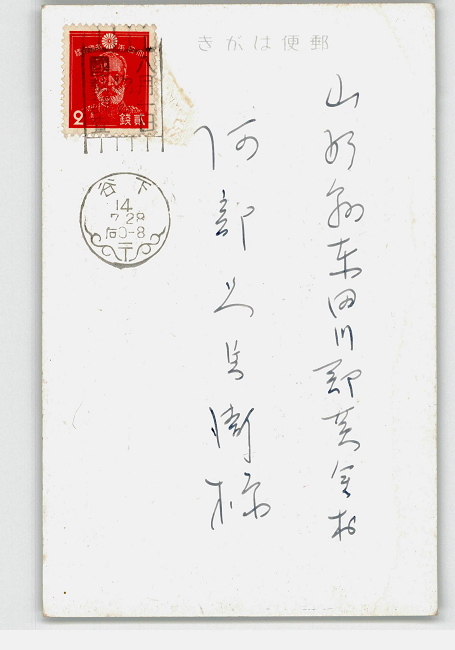 郵便はがき
山形縣東田川郡黄金村
阿部久兵衛様
2
貳銭
下谷
14
7 28
后0-8